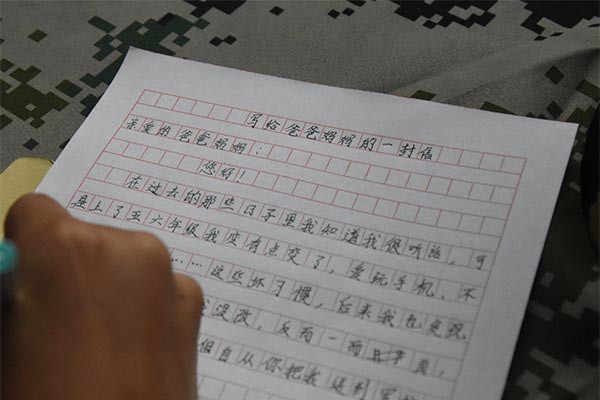 写给爸爸妈妈的一封信
亲爱的爸爸妈妈：
您好！
在过去的那些日子里我知道我很听话，可
是上了五六年级我变有点变了，爱玩手机、不
……这些坏习惯，后来我也
没改，反而一而再再而三，
但自从你把我送到